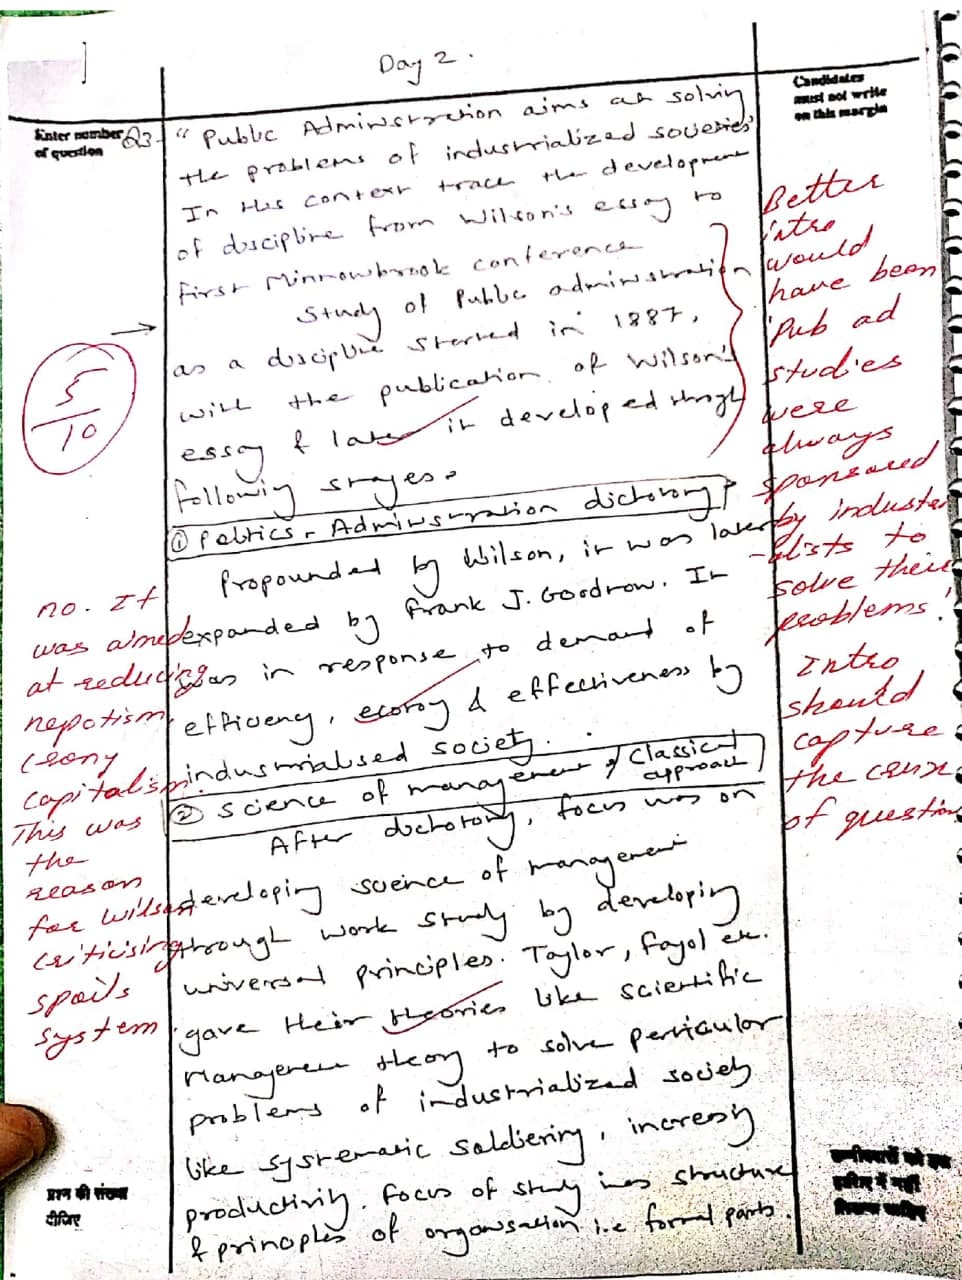 Day 2.
Candidates
must not write
on this margin
Enter number
of question
Q3. "Public Administration aims at solving
the problems of industrialized societies"
In this context trace the development
of discipline from Wilson's essay to
first Minnowbrook conference
Study of Public administration
as a discipline started in 1887,
with the publication of Wilson's
essay & later it developed through
following stages.
5/10
Better
intro
would
have been
'Pub ad
studies
were
always
sponsored
by industr
-alists to
solve their
problems'.
Intro
should
capture
the crux
of question
① Politics - Administration dichotomy
Propounded by Wilson, it was later
expanded by Frank J. Goodnow. It
was in response to demand of
efficiency, economy & effectiveness by
industrialised society.
no. It
was aimed
at reducing
nepotism,
crony
capitalism.
This was
the
reason
for Wilson
criticising
spoils
system.
② Science of management / Classical approach
After dichotomy, focus was on
developing science of management
through work study by developing
universal principles. Taylor, Fayol etc.
gave their theories like scientific
Management theory to solve perticular
problems of industrialized society
like systematic soldiering, increasing
productivity. Focus of study was structure
& principles of organisation i.e formal parts.
प्रश्न की संख्या
दीजिए
उम्मीदवारों को इस
हाशिए में नहीं
लिखना चाहिए